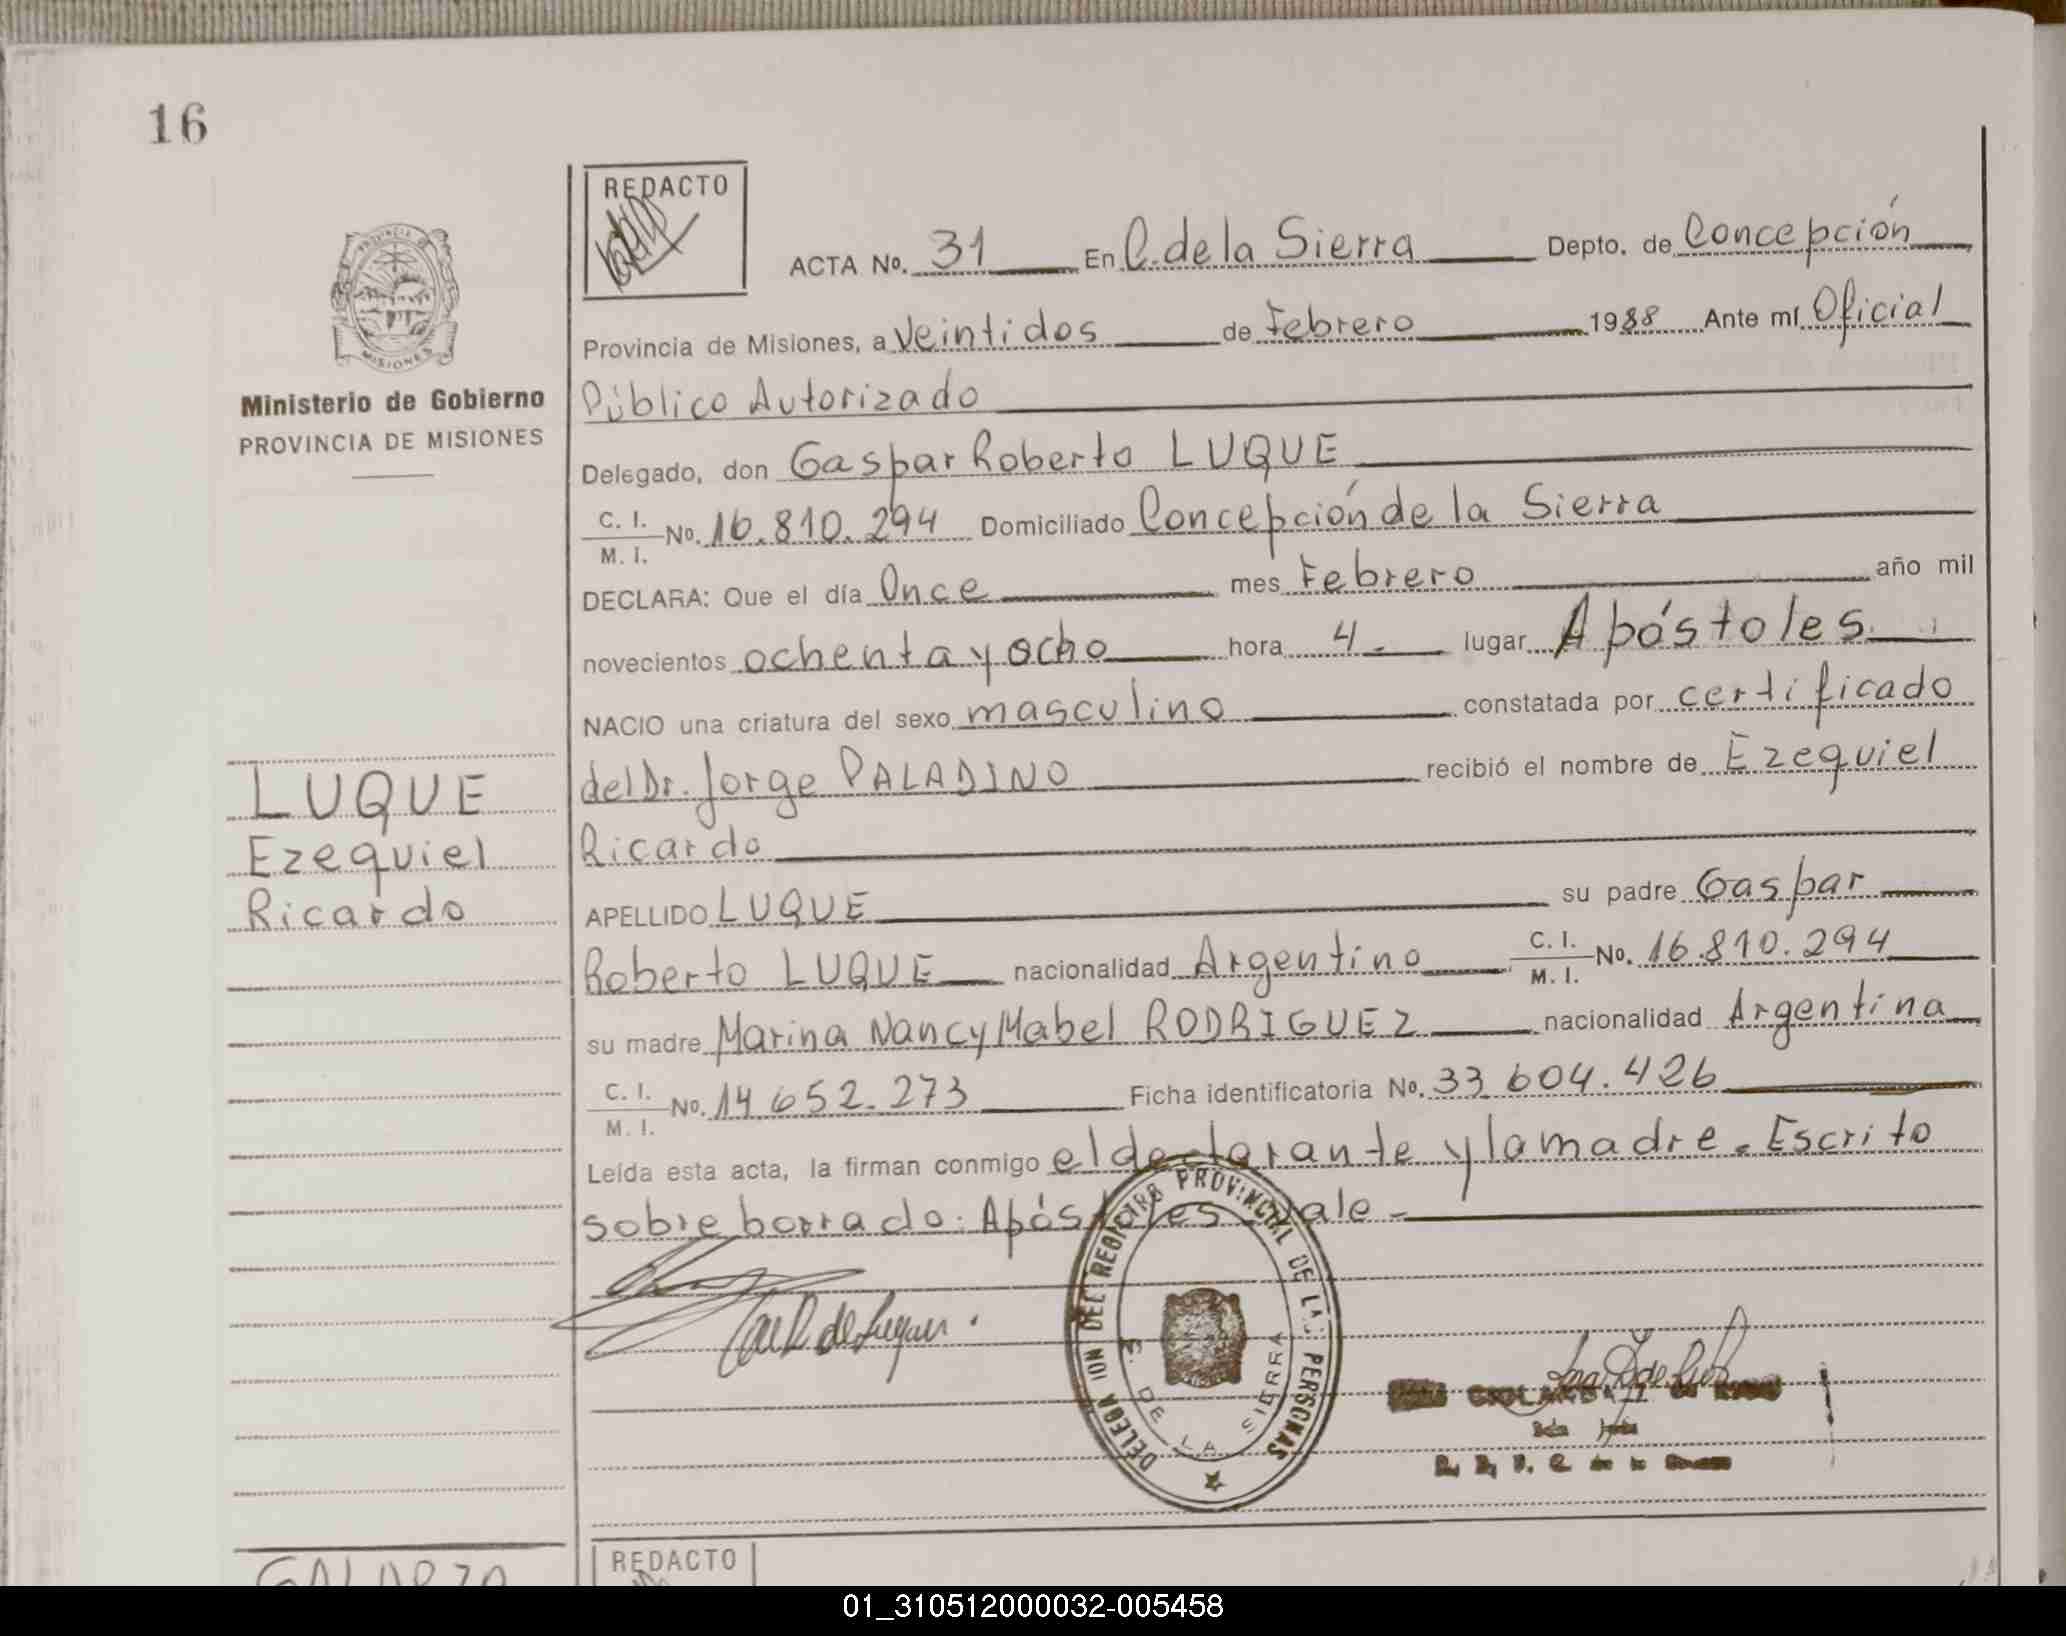 16
REDACTO
ACTA No. 31 En C. de la Sierra Depto. de Concepción
Provincia de Misiones, a Veintidos de Febrero 1988 Ante mí Oficial
Público Autorizado
Delegado, don Gaspar Roberto LUQUE
C. I. / M. I. No. 16.810.294 Domiciliado Concepción de la Sierra
DECLARA: Que el día Once mes Febrero año mil
novecientos ochenta y ocho hora 4.- lugar Apóstoles
NACIO una criatura del sexo masculino constatada por certificado
del Dr. Jorge PALADINO recibió el nombre de Ezequiel
Ricardo
APELLIDO LUQUE su padre Gaspar
Roberto LUQUE nacionalidad Argentino C. I. / M. I. No. 16.810.294
su madre Marina Nancy Mabel RODRIGUEZ nacionalidad Argentina
C. I. / M. I. No. 14.652.273 Ficha identificatoria No. 33.604.426
Leída esta acta, la firman conmigo el declarante y la madre. Escrito
sobre borrado: Apóstoles vale-
PROVINCIA DE
MISIONES
Ministerio de Gobierno
PROVINCIA DE MISIONES
LUQUE
Ezequiel
Ricardo
DELEGACION DEL REGISTRO PROVINCIAL DE LAS PERSONAS
DE LA SIERRA
REDACTO
01_310512000032-005458